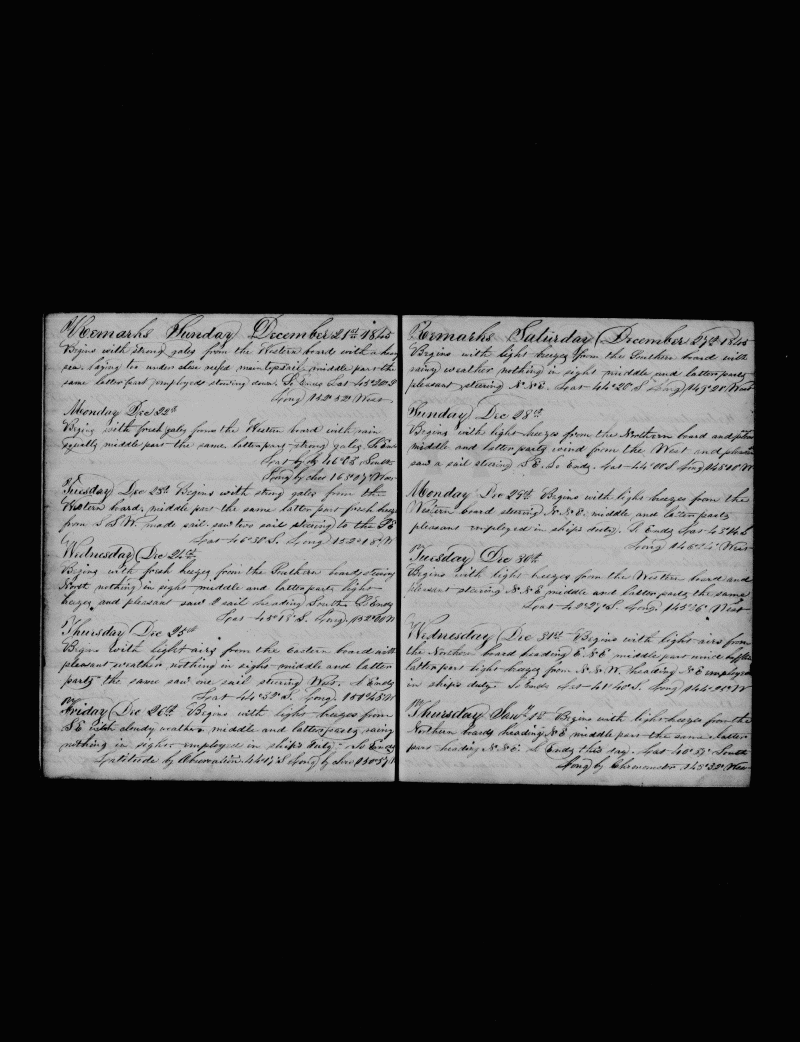 Remarks Sunday December 21st 1845
Begins with strong gales from the Western board with a heavy
sea. laying to under close reefd maintopsail middle part the
same latter part employed stowing down. So Ends Lat 45°20 S
Long 152°52 West
Monday Dec 22d
Begins with fresh gales from the Western board with rain
squally middle part the same. latter part strong gales So Ends
Lat by 46°06 South
Long by chro West
Tuesday Dec 23d Begins with strong gales from the
Western board, middle part the same latter part fresh breezes
from S S W. made sail saw two sail steering to the
Lat 46°30' S. Long 152°18' W
Wednesday Dec 24th
Begins with fresh breezes from the Southern board steering
North nothing in sight middle and latter parts light
breezes and pleasant saw a sail heading South So Ends
Lat 45°18' S. Long 152°00 W
Thursday Dec 25th
Begins with light airs from the Eastern board with
pleasant weather nothing in sight middle and latter
parts the same saw one sail steering West. So Ends
Lat 44°53' S. Long 151°45 W
Friday Dec 26th Begins with light breezes from
S E with cloudy weather middle and latter parts rainy
nothing in sight employed in ship's duty So Ends
Latitude by Observation 44°17' S Long by 150°57
Remarks Saturday December 27th 1845
Begins with light breezes from the Southern board with
rainy weather nothing in sight middle and latter parts
pleasant steering N.N.E. Lat 44°20' S Long 149°20' West
Sunday Dec 28th
Begins with light breezes from the Northern board and
middle and latter parts wind from the West and pleasant
saw a sail steering S E. So Ends. Lat 44°00 S Long W
Monday Dec 29th Begins with light breezes from the
Western board steering N.N.E. middle and latter parts
pleasant employed in ship's duty. So Ends Lat S
Long 146°24' West
Tuesday Dec 30th
Begins with light breezes from the Western board and
pleasant steering N.N.E middle and latter parts the same
Lat 42°27' S. Long. 145°26' West
Wednesday Dec 31st Begins with light airs from
the Northern board heading E.N.E middle part wind
latter part light breezes from N.N.W. heading N E employed
in ship's duty. So Ends Lat 41°40' S. Long W
Thursday Janry 1st Begins with light breezes from the
Northern board heading N E middle part the same latter
part heading N.N.E. So Ends this day. Lat 40°57' South
Long by Chronometer 145°33' West